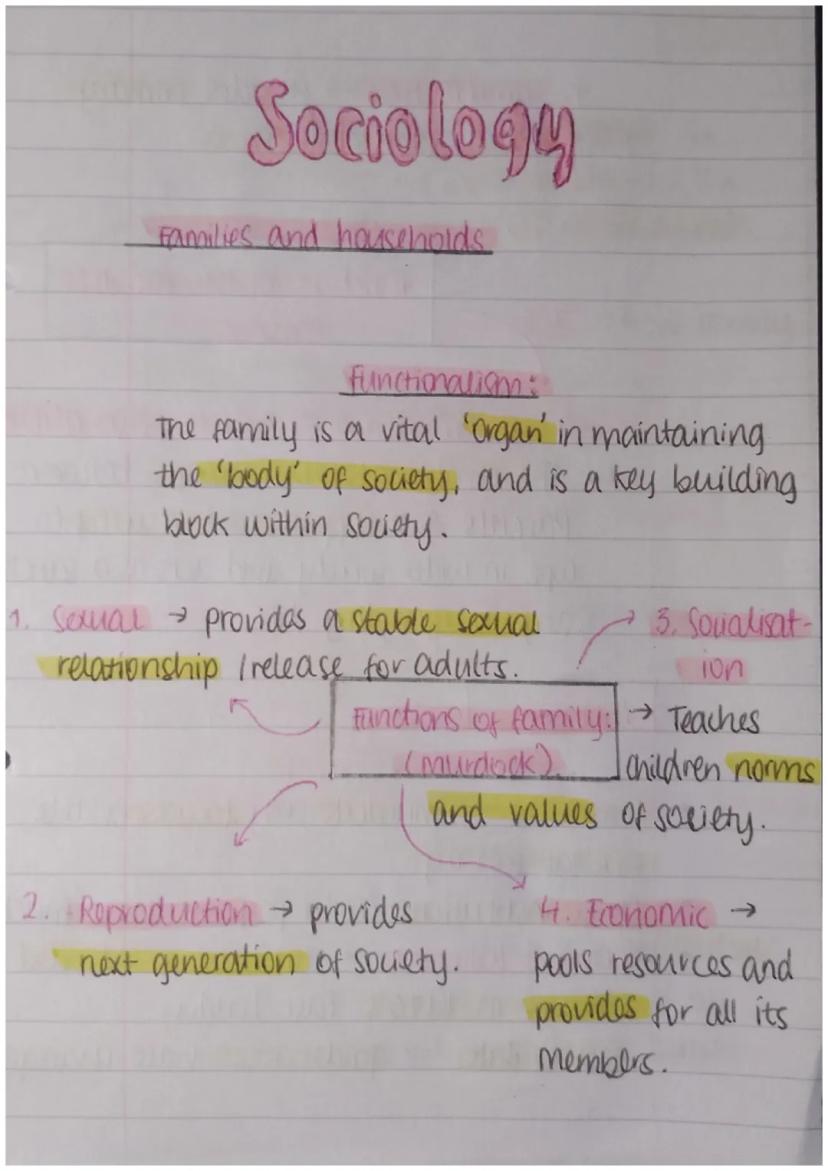 Sociology
Families and households
Functionalism:
The family is a vital 'organ' in maintaining
the 'body' of society, and is a key building
block within society.
1. Sexual → provides a stable sexual
relationship / release for adults.
3. Socialisat-
ion
Functions of family:
(murdock)
→ Teaches
children norms
and values of society.
2. Reproduction → provides
next generation of society.
4. Economic →
pools resources and
provides for all its
members.